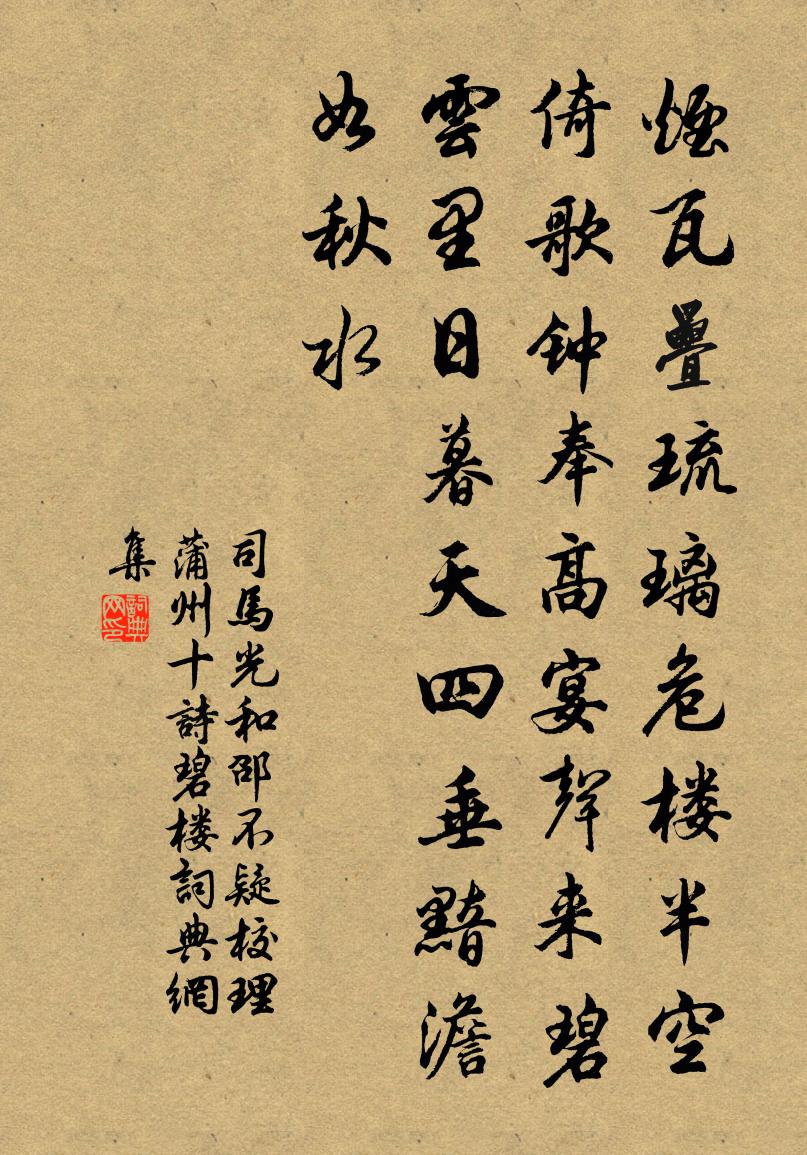 煙瓦疊琉璃危楼半空
倚歌钟奉高宴聲来碧
雲里日暮天四垂黯澹
如秋水
司馬光和邵不疑校理
蒲州十詩碧楼詞典網
集
詞典
网印